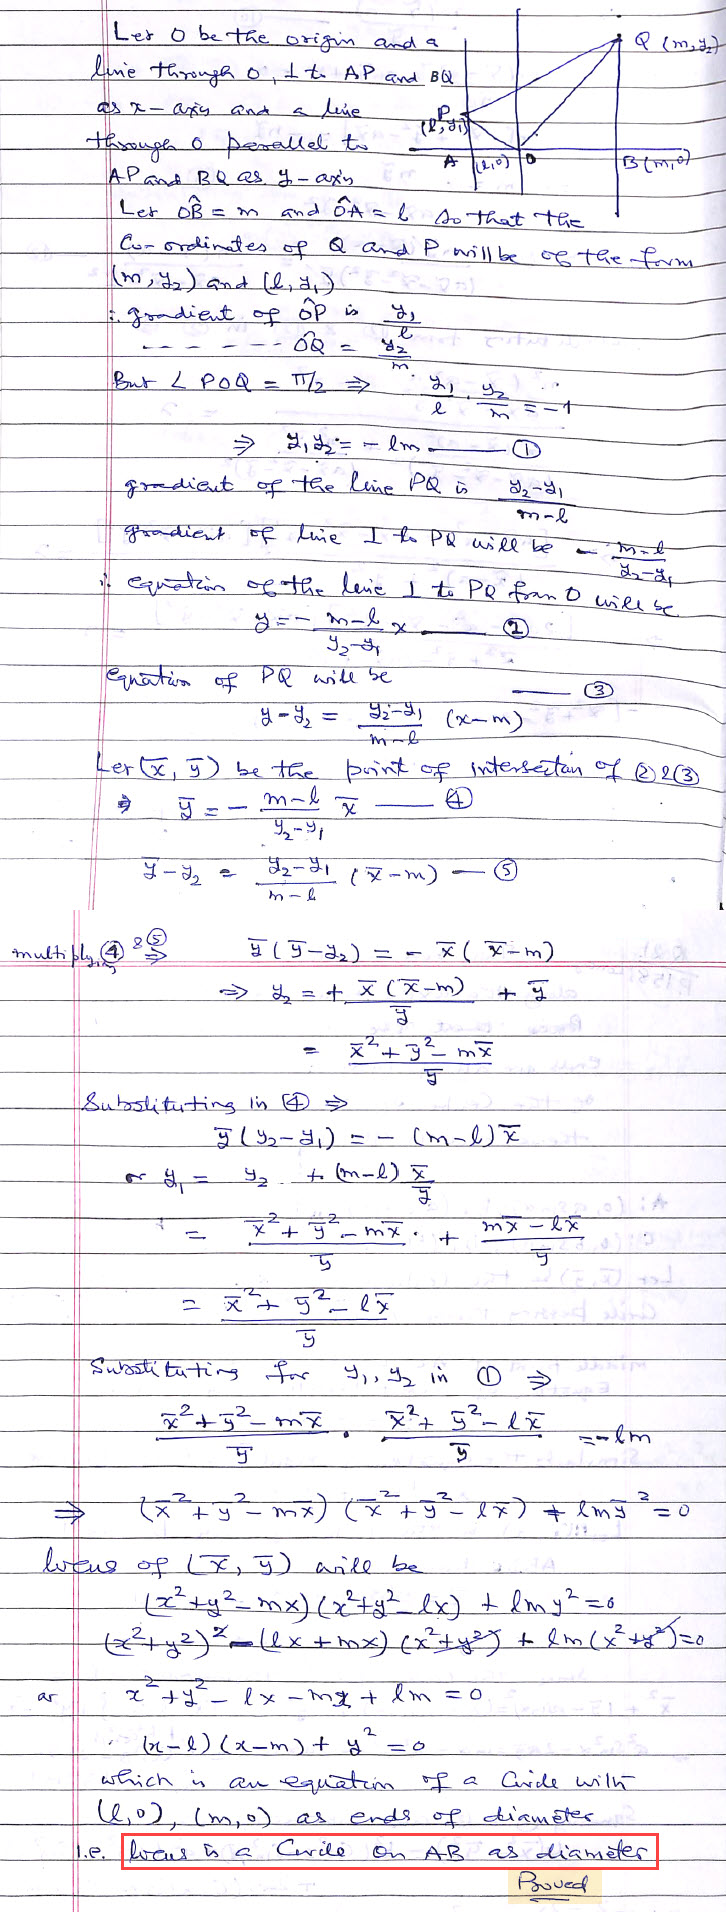 Let O be the origin and a
line through O, ⊥ to AP and BQ
as x-axis and a line
through O parallel to
AP and BQ as y-axis
Q (m, y₂)
P
(l, y₁)
A
(l, 0)
O
B (m, 0)
Let OB̂ = m and OÂ = l so that the
Co-ordinates of Q and P will be of the form
(m, y₂) and (l, y₁)
∴ gradient of OP̂ is y₁/l
- - - - - - - OQ̂ = y₂/m
But ∠ POQ = π/2 ⇒ y₁/l · y₂/m = -1
⇒ y₁y₂ = - lm —— ①
gradient of the line PQ is (y₂-y₁)/(m-l)
gradient of line ⊥ to PQ will be - (m-l)/(y₂-y₁)
∴ equation of the line ⊥ to PQ from O will be
y = - (m-l)/(y₂-y₁) x —— ②
equation of PQ will be
y - y₂ = (y₂-y₁)/(m-l) (x-m) —— ③
Let (x̄, ȳ) be the point of intersection of ② & ③
⇒ ȳ = - (m-l)/(y₂-y₁) x̄ —— ④
ȳ - y₂ = (y₂-y₁)/(m-l) (x̄-m) — ⑤
multiplying ④ & ⑤ ⇒ ȳ(ȳ-y₂) = - x̄(x̄-m)
⇒ y₂ = + x̄(x̄-m)/ȳ + ȳ
= (x̄²+ȳ²-mx̄)/ȳ
Substituting in ④ ⇒
ȳ(y₂-y₁) = - (m-l)x̄
or y₁ = y₂ + (m-l) x̄/ȳ
= (x̄²+ȳ²-mx̄)/ȳ + (mx̄-lx̄)/ȳ
= (x̄²+ȳ²-lx̄)/ȳ
Substituting for y₁, y₂ in ① ⇒
(x̄²+ȳ²-mx̄)/ȳ · (x̄²+ȳ²-lx̄)/ȳ = -lm
⇒ (x̄²+ȳ²-mx̄)(x̄²+ȳ²-lx̄) + lmȳ² = 0
locus of (x̄, ȳ) will be
(x²+y²-mx)(x²+y²-lx) + lmy² = 0
(x²+y²)² - (lx+mx)(x²+y²) + lm(x²+y²) = 0
or x²+y²-lx-mx+lm = 0
(x-l)(x-m) + y² = 0
which is an equation of a Circle with
(l,0), (m,0) as ends of diameter
i.e. locus is a Circle on AB as diameter
Proved